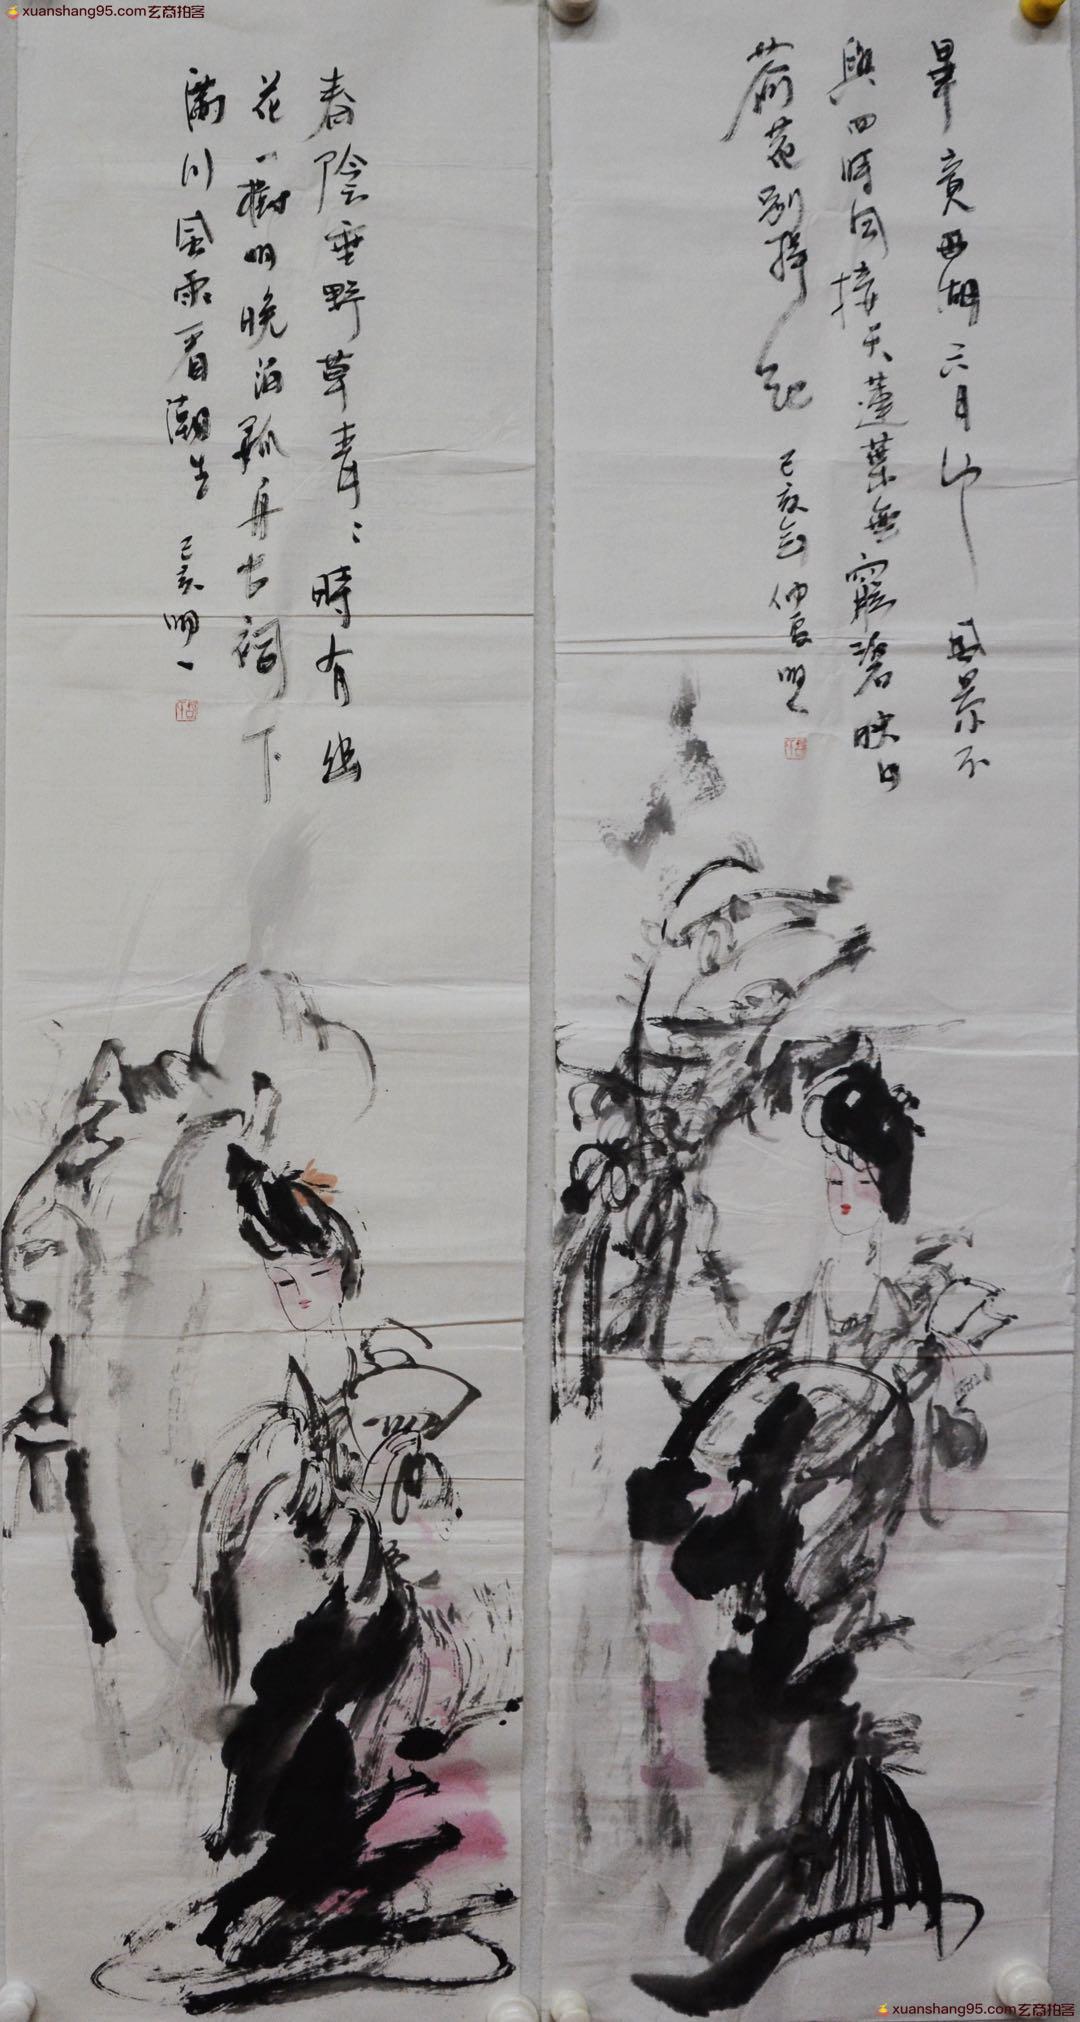 xuanshang95.com玄商拍客
畢竟西湖六月中 風景不
與四時同接天蓮葉無窮碧映日
荷花別樣紅
己亥年仲夏明一
春陰垂野草青青時有幽
花一樹明晚泊孤舟古祠下
滿川風雨看潮生
己亥明一
xuanshang95.com玄商拍客